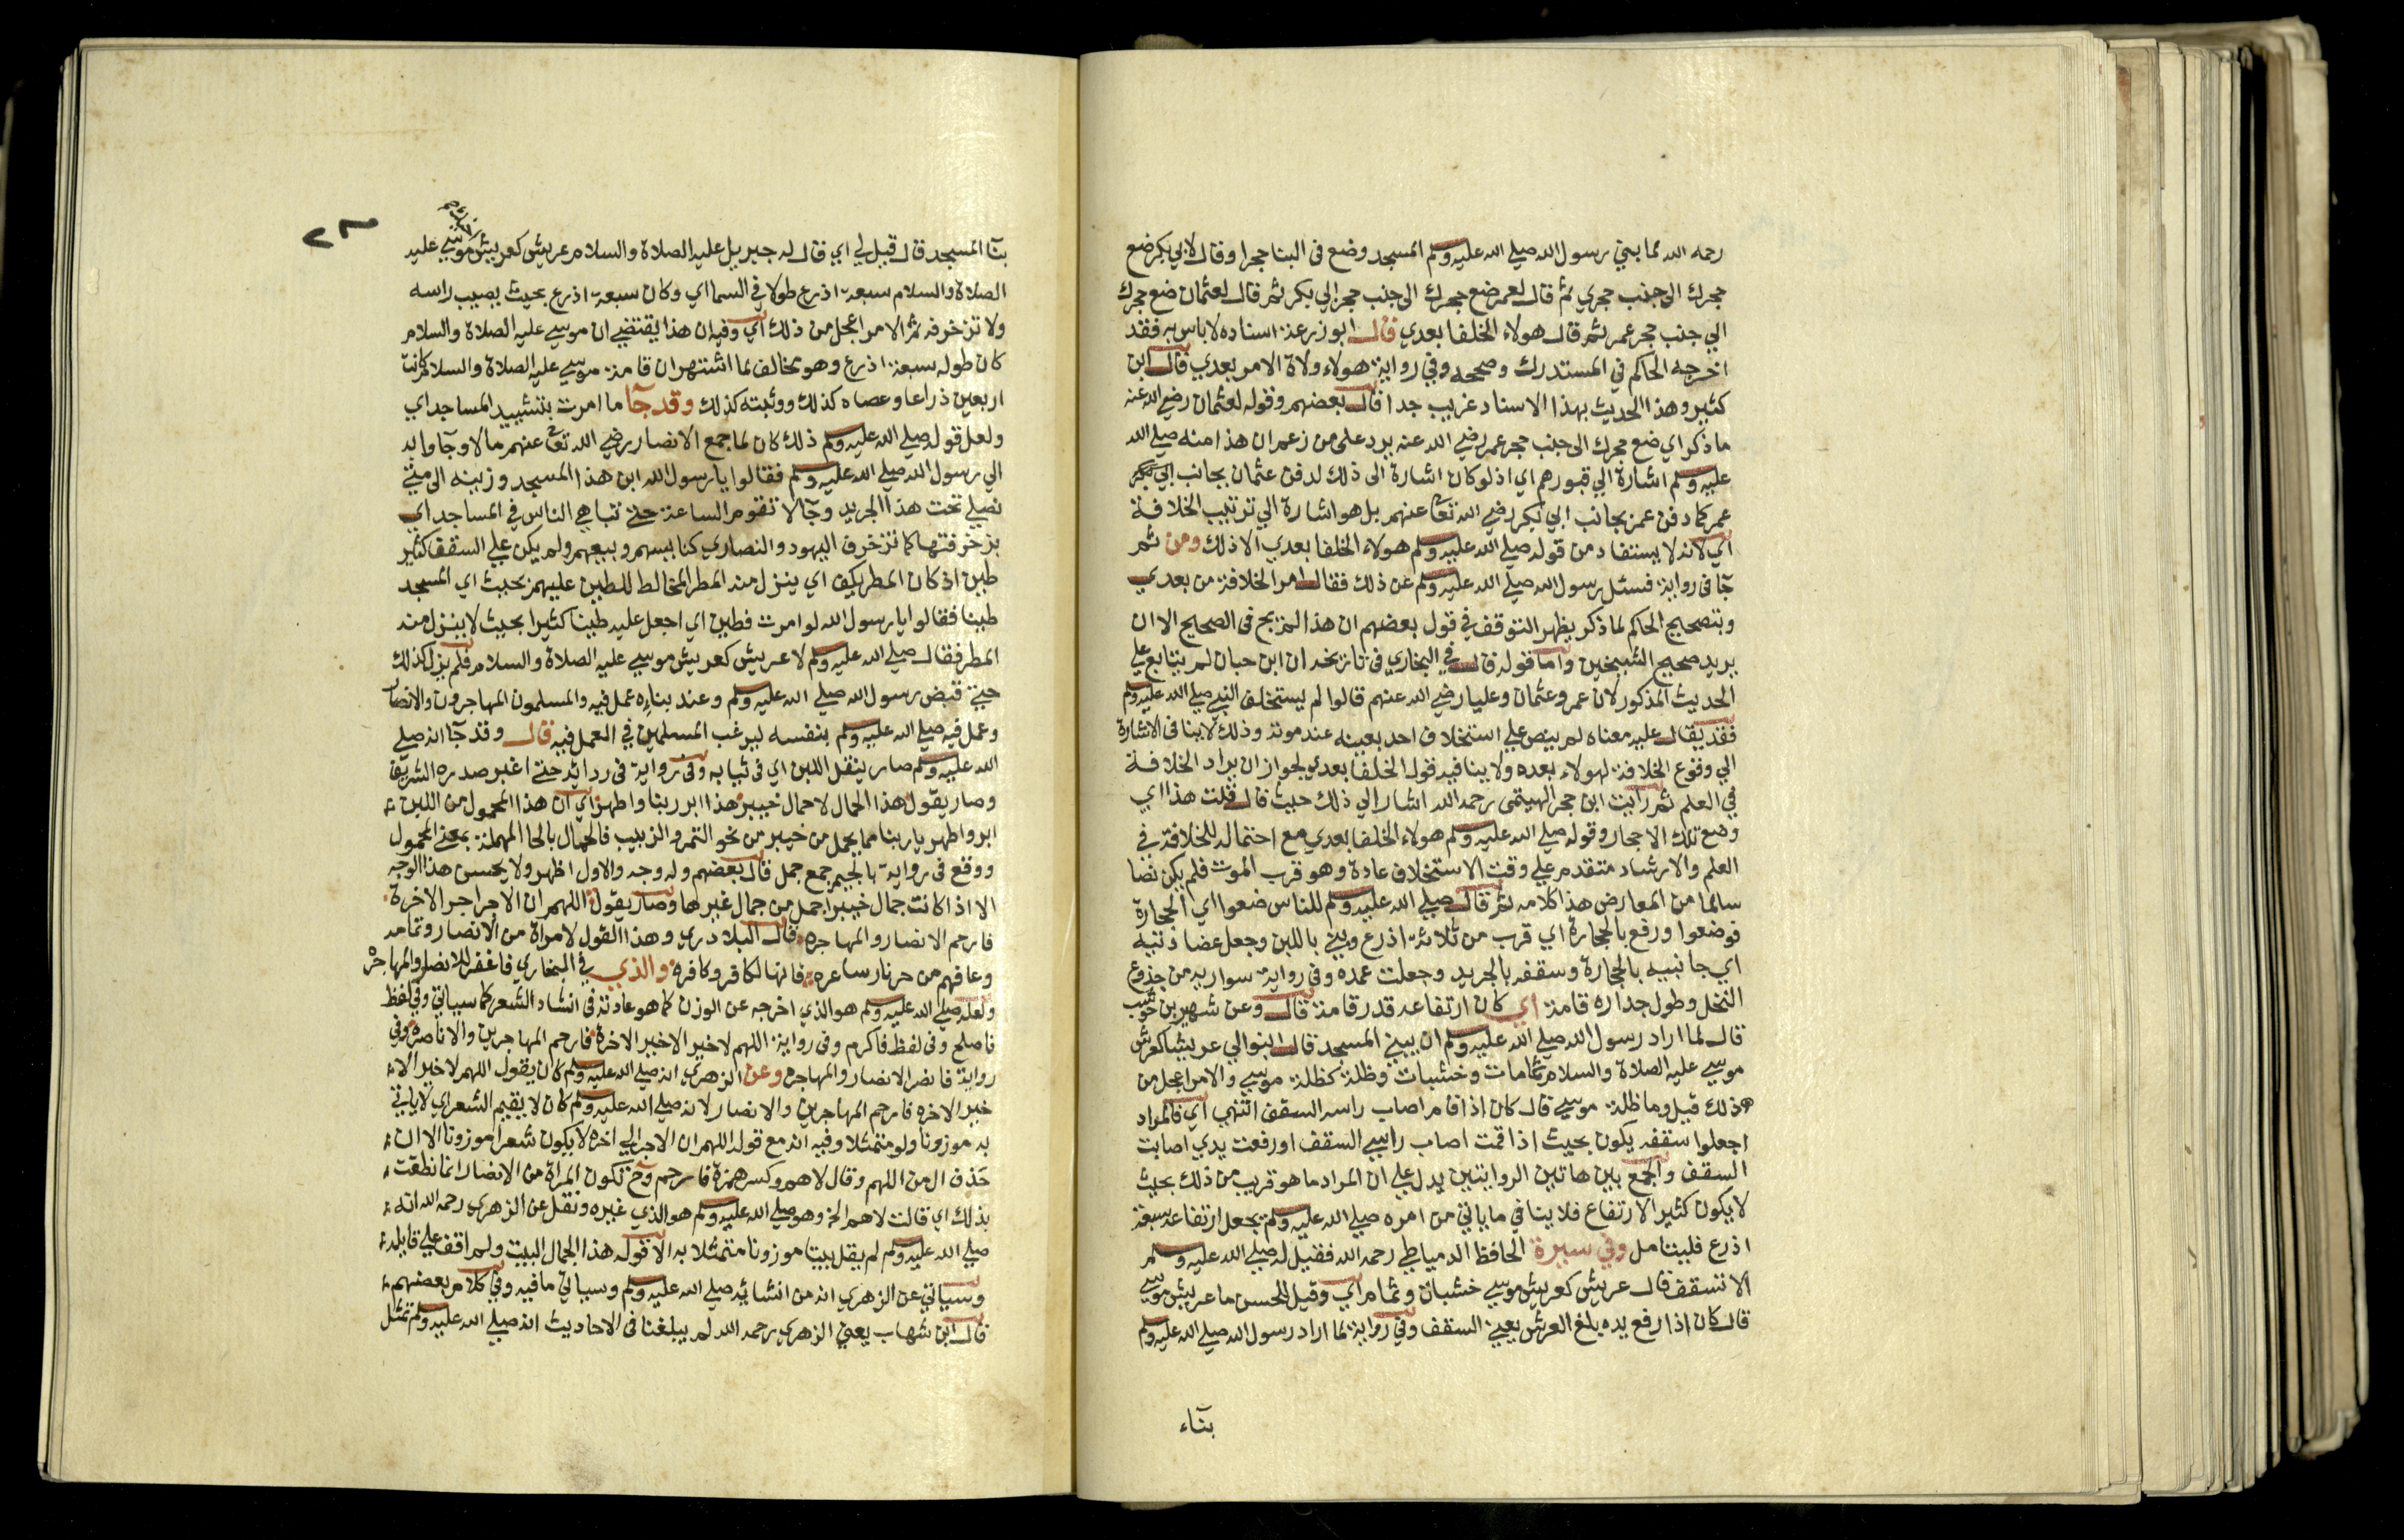 رحمه الله لما بني رسول الله صلي الله عليه وسلم المسجد وضع في البنا حجرا وقال لابي بكر ضع
حجرك الى جنب حجري ثم قال لعمر ضع حجرك الى جنب حجر ابي بكر ثم قال لعثمان ضع حجرك
الي جنب حجر عمر ثم قال هولاء الخلفا بعدي قال ابو زرعة اسناده لا باس به فقد
اخرجه الحاكم في المستدرك وصححه وفي رواية هولاء ولاة الامر بعدي قال ابن
كثير وهذا الحديث بهذا الاسناد غريب جدا قال بعضهم وقوله لعثمان رضي الله عنه
ما ذكر اي ضع حجرك الى جنب حجر عمر رضي الله عنه يرد علي من زعم ان هذا منه صلي الله
عليه وسلم اشارة الي قبورهم اي اذ لو كان اشارة الى ذلك لدفن عثمان بجانب ابي بكر
عمر كما دفن عمر بجانب ابي بكر رضي الله تعا عنهم بل هو اشارة الي ترتيب الخلافة
اي لانه لا يستفاد من قوله صلي الله عليه وسلم هولاء الخلفا بعدي الا ذلك ومن ثم
جآ في رواية فسئل رسول الله صلي الله عليه وسلم عن ذلك فقال امر الخلافة من بعدي
وبتصحيح الحاكم لما ذكر يظهر التوقف في قول بعضهم ان هذا لم يجئ في الصحيح الا ان
يريد صحيح الشيخين واما قوله قال في البخاري في تاريخه ان ابن حبان لم يتابع علي
الحديث المذكور لان عمر وعثمان وعليا رضي الله عنهم قالوا لم يستخلف النبي صلي الله عليه وسلم
فقد يقال عليه معناه لم ينص علي استخلاف احد بعينه عند موته وذلك لا ينافي الاشارة
الي وقوع الخلافة لهولاء بعده ولا ينافيه قوله الخلفا بعدي لجواز ان يراد الخلافة
في العلم ثم رايت ابن حجر الهيتمي رحمه الله اشار الي ذلك حيث قال قلت هذا اي
وضع تلك الاحجار وقوله صلي الله عليه وسلم هولاء الخلفا بعدي مع احتماله للخلافة في
العلم والارشاد متقدم علي وقت الاستخلاف عادة وهو قرب الموت فلم يكن نصا
سالما من المعارض هذا كلامه ثم قال صلي الله عليه وسلم للناس ضعوا اي الحجارة
فوضعوا ورفع بالحجارة اي قرب من ثلاثة اذرع وبني باللبن وجعل عضادتيه
اي جانبيه بالحجارة وسقفه بالجريد وجعلت عمده وفي رواية سواريه من جذوع
النخل وطول جداره قامة اي كان ارتفاعه قدر قامة قال وعن شهر بن حوشب
قال لما اراد رسول الله صلي الله عليه وسلم ان يبني المسجد قال ابنوا لي عريشا كعرش
موسي عليه الصلاة والسلام ثمامات وخشبات وظلة كظلة موسي والامر اعجل من
ذلك قيل وما ظلة موسي قال كان اذا قام اصاب راسه السقف انتهي اي فالمراد
اجعلوا سقفه يكون بحيث اذا قمت اصاب راسي السقف او رفعت يدي اصابت
السقف والجمع بين هاتين الروايتين يدل علي ان المراد ما هو قريب من ذلك بحيث
لا يكون كثير الارتفاع فلا ينافي ما ياتي من امره صلي الله عليه وسلم بجعل ارتفاعه سبعة
اذرع فليتامل وفي سيرة الحافظ الدمياطي رحمه الله فقيل له صلي الله عليه وسلم
الا تسقف قال عريش كعريش موسي خشبات وثمام اي وقيل للحسن ما عريش موسي
قال كان اذا رفع يده بلغ العرش يعني السقف وفي رواية لما اراد رسول الله صلي الله عليه وسلم
بنآء
٢٣
بنآ المسجد قال قيل لي اي قال له جبريل عليه الصلاة والسلام عريش كعريش موسي عليه
الصلاة والسلام سبعة اذرع طولا في السما اي وكان سبعة اذرع بحيث يصيب راسه
ولا تزخرفه ثم الامر اعجل من ذلك اي وفيه ان هذا يقتضي ان موسي عليه الصلاة والسلام
كان طوله سبعة اذرع وهو مخالف لما اشتهر ان قامة موسي عليه الصلاة والسلام كانت
اربعين ذراعا وعصاه كذلك ووثبته كذلك وقد جآ ما امرت بتشييد المساجد اي
ولعل قوله صلي الله عليه وسلم ذلك كان لما جمع الانصار رضي الله تعا عنهم مالا وجآوا به
الي رسول الله صلي الله عليه وسلم فقالوا يا رسول الله ابن هذا المسجد وزينه الى متي
نصلي تحت هذا الجريد وجآ لا تقوم الساعة حتي تتباهي الناس في المساجد اي
بزخرفتها كما تزخرف اليهود والنصاري كنايسهم وبيعهم ولم يكن علي السقف كثير
طين اذ كان المطر يكف اي ينزل منه المطر المخالط للطين عليهم بحيث اي المسجد
طينا فقالوا يا رسول الله لو امرت فطين اي اجعل عليه طينا كثيرا بحيث لا ينزل منه
المطر فقال صلي الله عليه وسلم لا عريش كعريش موسي عليه الصلاة والسلام فلم يزل كذلك
حتي قبض رسول الله صلي الله عليه وسلم وعند بناءه عمل فيه والمسلمون المهاجرون والانصار
وعمل فيه صلي الله عليه وسلم بنفسه ليرغب المسلمين في العمل فيه قال وقد جآ انه صلي
الله عليه وسلم صار ينقل اللبن اي في ثيابه وفي رواية في ردائه حتي اغبر صدره الشريف
وصار يقول هذا الحمال لا حمال خيبر هذا ابر ربنا واطهر اي ان هذا المحمول من اللبن
ابر واطهر يا ربنا مما يحمل من خيبر من نحو التمر والزبيب فالحمال بالحا المهملة بمعني المحمول
ووقع في رواية بالجيم جمع جمل قال بعضهم وله وجه والاول اظهر ولا يحسن هذا الوجه
الا اذا كانت جمال خيبر اجمل من جمال غيرها وصار يقول اللهم ان الاجر اجر الاخرة
فارحم الانصار والمهاجره قال البلادري وهذا القول لامراة من الانصار وتمامه
وعافهم من حر نار ساعره فانها لكافر وكافره والذي في البخاري فاغفر للانصار والمهاجره
ولعله صلي الله عليه وسلم هو الذي اخرجه عن الوزن كما هو عادته في انشاد الشعر كما سياتي وفي لفظ
فاصلح وفي لفظ فاكرم وفي رواية اللهم لا خير الا خير الاخرة فارحم المهاجرين والاناصره وفي
رواية فانصر الانصار والمهاجره وعن الزهري انه صلي الله عليه وسلم كان يقول اللهم لا خير الا
خير الاخره فارحم المهاجرين والانصار لانه صلي الله عليه وسلم كان لا يقيم الشعر اي لا ياتي
به موزونا ولو متمثلا وفيه انه مع قوله اللهم ان الاجر الي اخره لا يكون شعرا موزونا الا ان
حذف ال من اللهم وقال لاهم وكسر همزة فارحم وح تكون المراة من الانصار انما نطقت
بذلك اي قالت لاهم الخ وهو صلي الله عليه وسلم هو الذي غيره ونقل عن الزهري رحمه الله انه
صلي الله عليه وسلم لم يقل بيتا موزونا متمثلا به الا قوله هذا الحمال البيت ولم اقف علي قايله
وسياتي عن الزهري انه من انشائه صلي الله عليه وسلم وسياتي ما فيه وفي كلام بعضهم
قال ابن شهاب يعني الزهري رحمه الله لم يبلغنا في الاحاديث انه صلي الله عليه وسلم تمثل